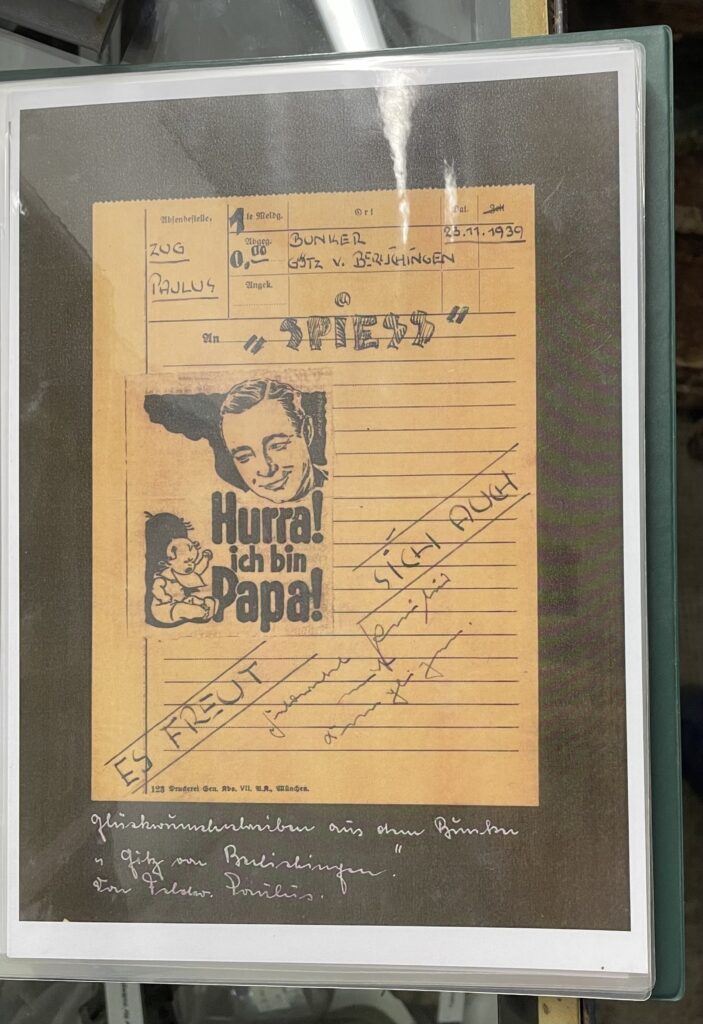 Absendestelle. 1 te Meldg. Ort Tat. Zeit
ZUG Abgeg. BUNKER 23.11.1939
PAULUS 0,00 GÖTZ v. BERLICHINGEN
Angek.
An „SPIESS“
Hurra!
ich bin
Papa!
SICH AUCH
ES FREUT
Druckerei Gen. Kdo. VII. A.K., München.
Glückwunschschreiben aus dem Bunker
„Götz von Berlichingen“.
Von Feldw. Paulus.